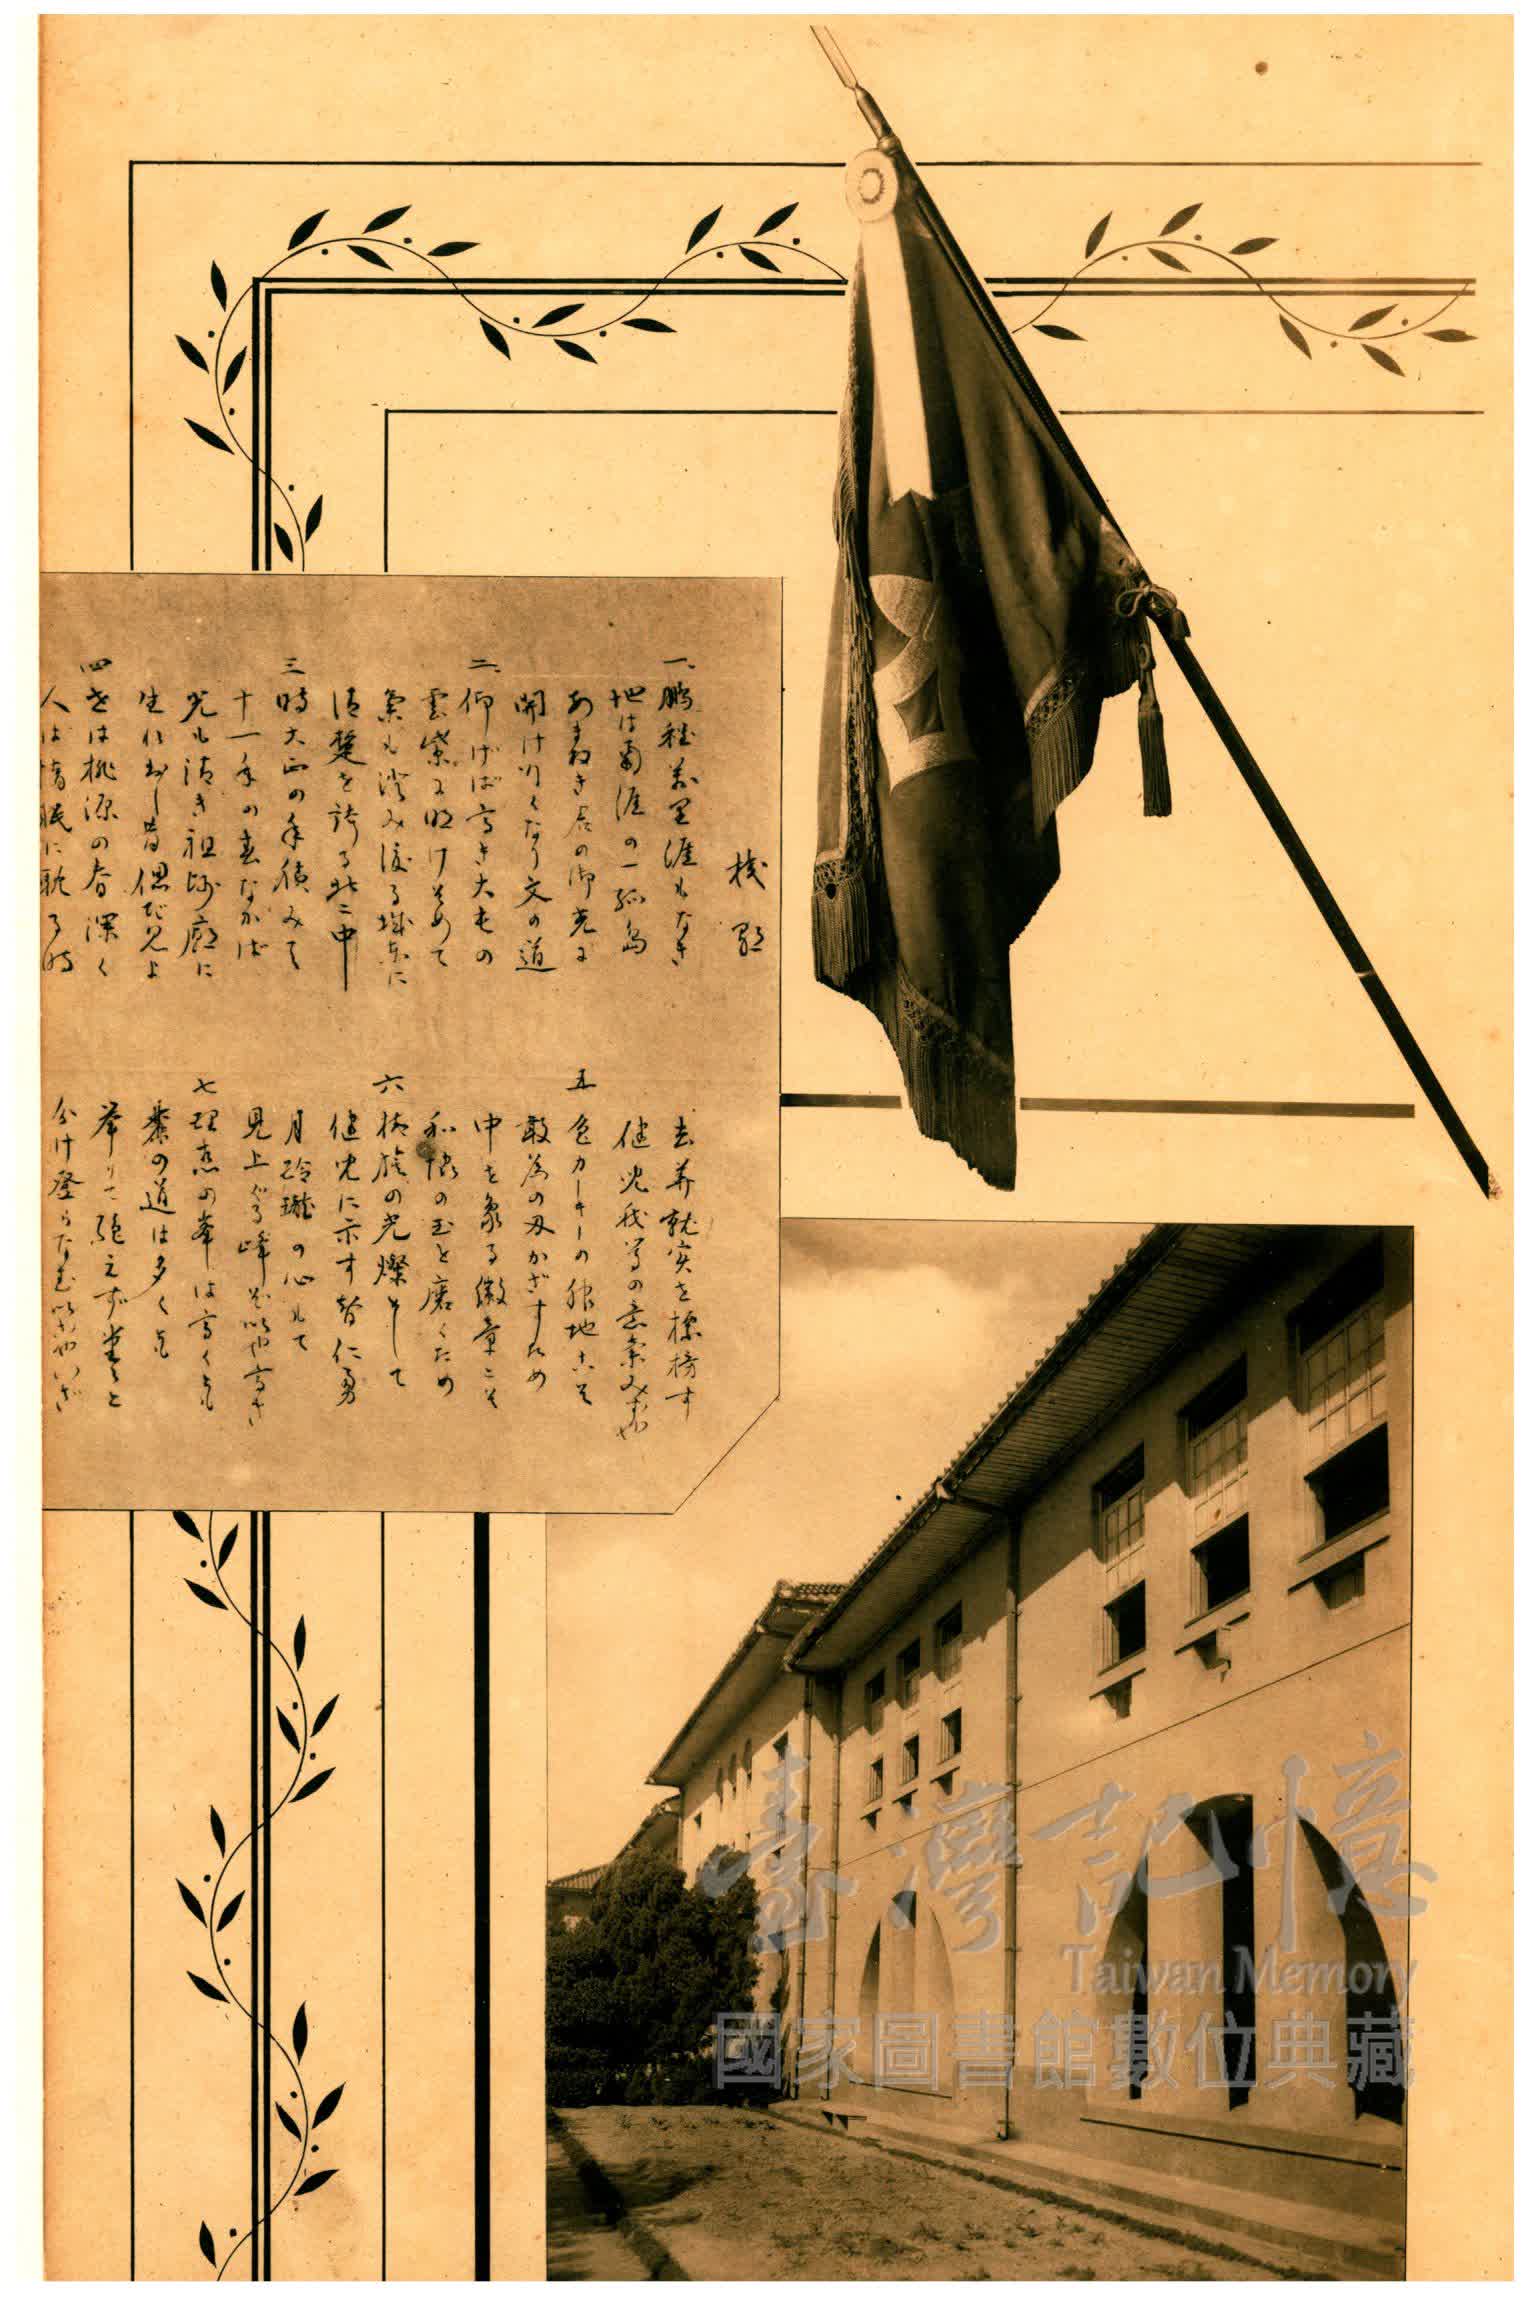 校歌
一、鵬程万里涯もなき
地は南涯の一孤島
あまねき君の御光に
開け行くなり文の道
二、仰げば高き大屯の
雲紫に明けそめて
気も澄み渡る城東に
清楚を誇る北二中
三 時大正の年積みて
十一年の春なかば
光も清き祖師廟に
生れ出し昔偲び見よ
四 世は桃源の春深く
人は惰眠に耽る時
去華就実を標榜す
健児我等の意気みずや
五 色カーキーの服地こそ
敢為の刃かざすため
中を象る徽章こそ
和協の玉と磨くため
六 校旗の光燦として
健児に示す智仁勇
月玲瓏の心もて
見上ぐる峰
七 理想の峯は高くとも
学の道は多くとも
挙りて絶えず堂々と
分け登らなむいざやいざ
臺灣記憶
Taiwan Memory
國家圖書館數位典藏